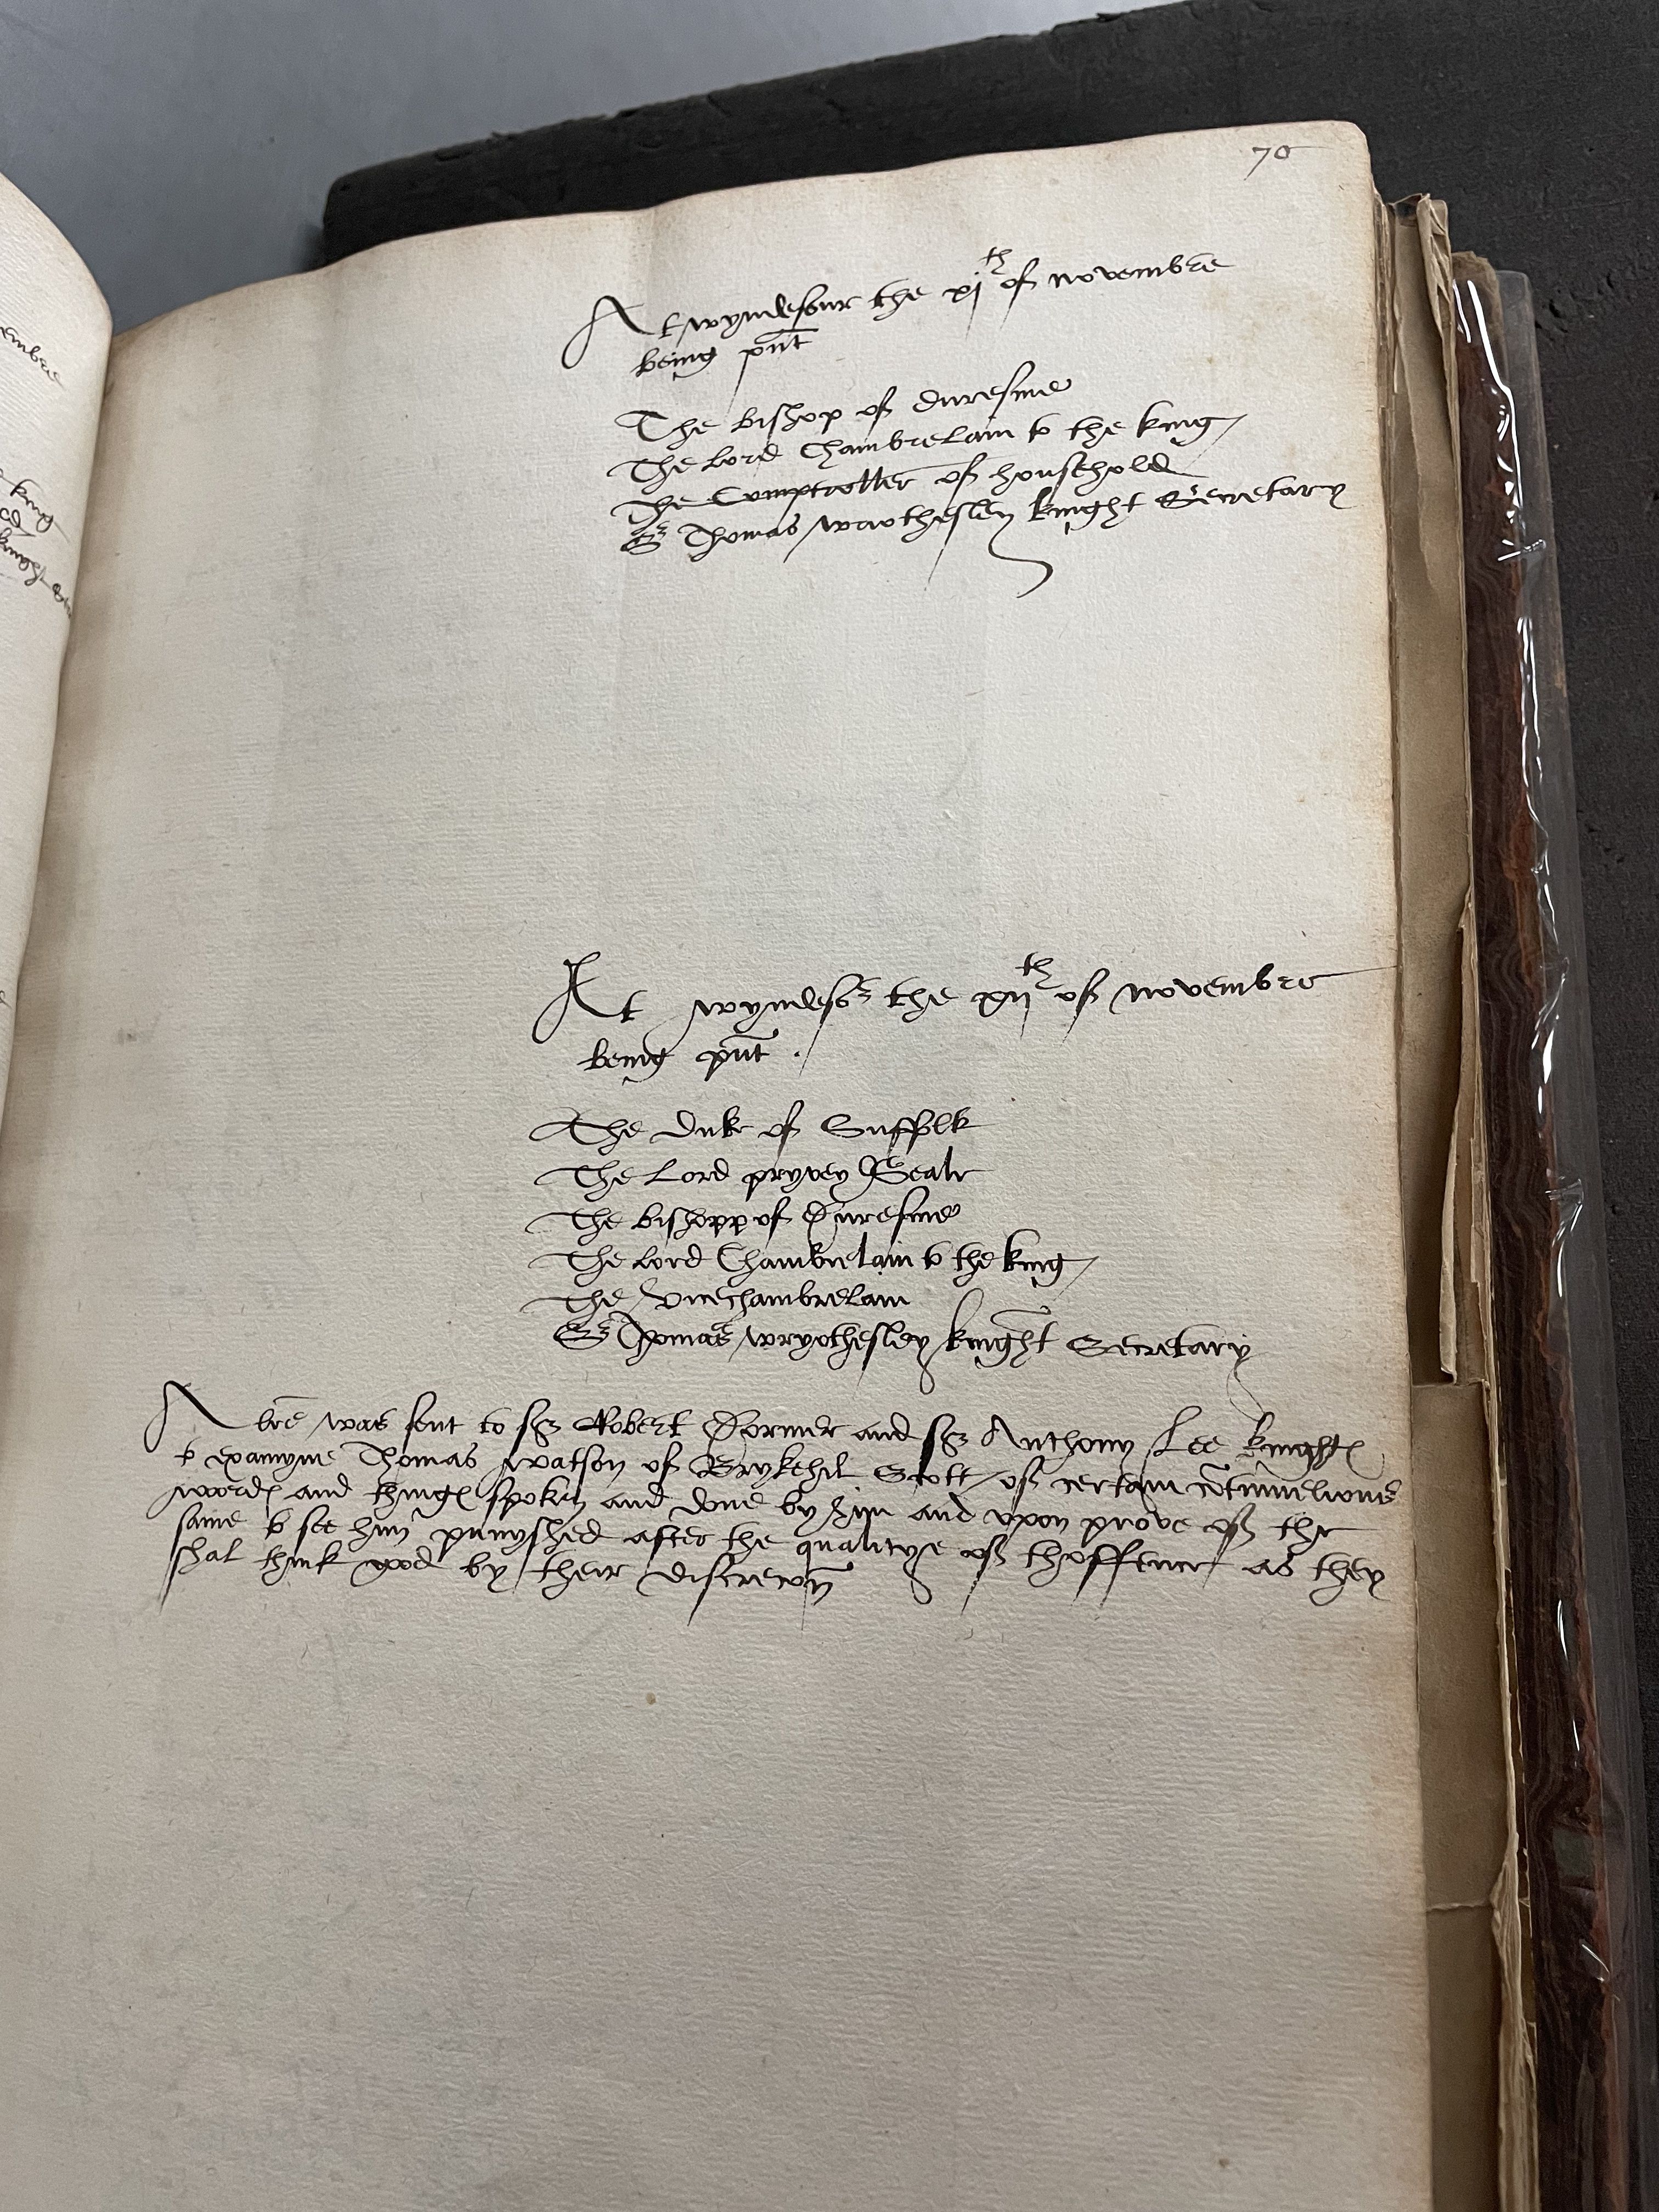 70
At wyndesour the xjth of novembre
being pn̄t
The bishop of Duresme
The lord Chambrelain to the king
The Comptroller of household
Sr Thomas wriothesley knight Secretary
At wyndesor the xijth of novembre
being pn̄t .
The Duke of Suffolk
The Lord pryvey Seale
The bishopp of Duresme
The lord Chambrelain to the king
The Vicechambrelain
Sr Thomas wryothesley knight Secretary
A lr̄e was sent to sr Robert Dormer and sr Anthony Lee knightes
to examyne Thomas watson of Brykehil Scott of certain cōtumelious
wordes and thinges spoken and done by him and upon prove of the
same to see him punyshed after the qualitye of thoffence as they
shal think good by their discrecōn
embre
king